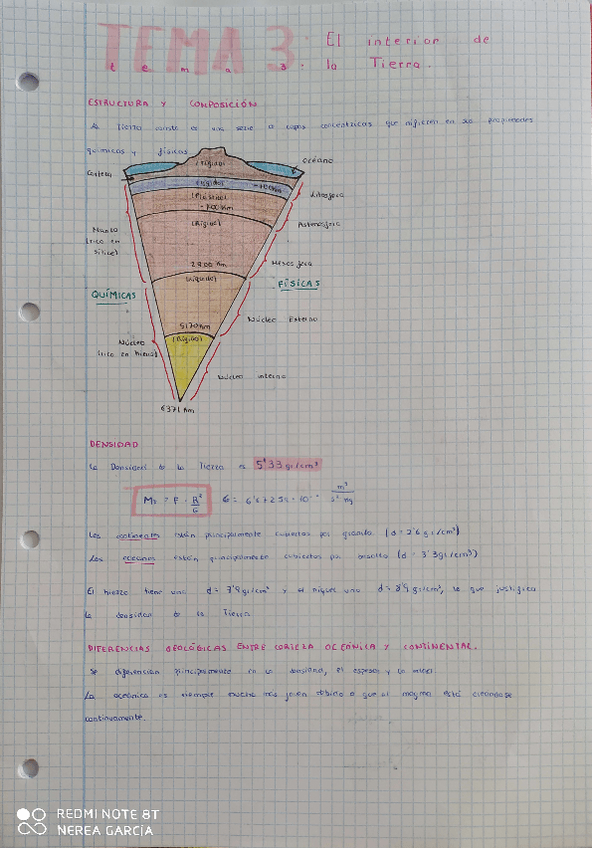 TEMA 3: El interior de
tema 3. la Tierra.
ESTRUCTURA Y COMPOSICIÓN
La Tierra consta de una serie de capas concéntricas que difieren en sus propiedades
químicas y físicas
(rígido)
océano
Corteza
(rígido) -100km
Litosfera
(Plástico)
-700 km
Astenosfera
(Rígido)
Manto
(rico en
silice)
2900 km
Mesosfera
(líquido)
FÍSICAS
QUÍMICAS
Núcleo Externo
5170 km
(Rígido)
Núcleo
(rico en hierro)
Núcleo interno
6371 km
DENSIDAD
La Densidad de la Tierra es 5'33 gr/cm³
G = 6'6725 · 10 m³
s² kg
Los continentes están principalmente cubiertos por granito (d = 2'6 gr/cm³)
Los océanos están principalmente cubiertos por basalto (d = 3'3gr/cm³)
El hierro tiene una d = 7'8 gr/cm³ y el níquel una d = 8'9 gr/cm³, lo que justifica
la densidad de la Tierra
DIFERENCIAS GEOLÓGICAS ENTRE CORTEZA OCEÁNICA Y CONTINENTAL.
Se diferencian principalmente en la densidad, el espesor y la edad.
La oceánica es siempre mucho más joven debido a que el magma está creándose
continuamente.
REDMI NOTE 8T
NEREA GARCÍA